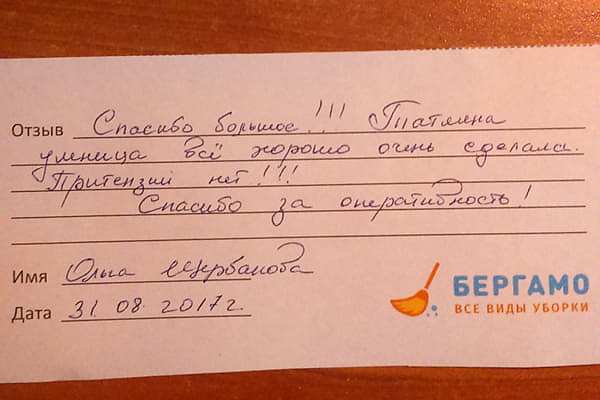 Отзыв Спасибо большое!!! Татьяна
умница всё хорошо очень сделала.
Притензий нет!!!
Спасибо за оперативность!
Имя Ольга Щербакова
Дата 31.08.2017г.
БЕРГАМО
ВСЕ ВИДЫ УБОРКИ